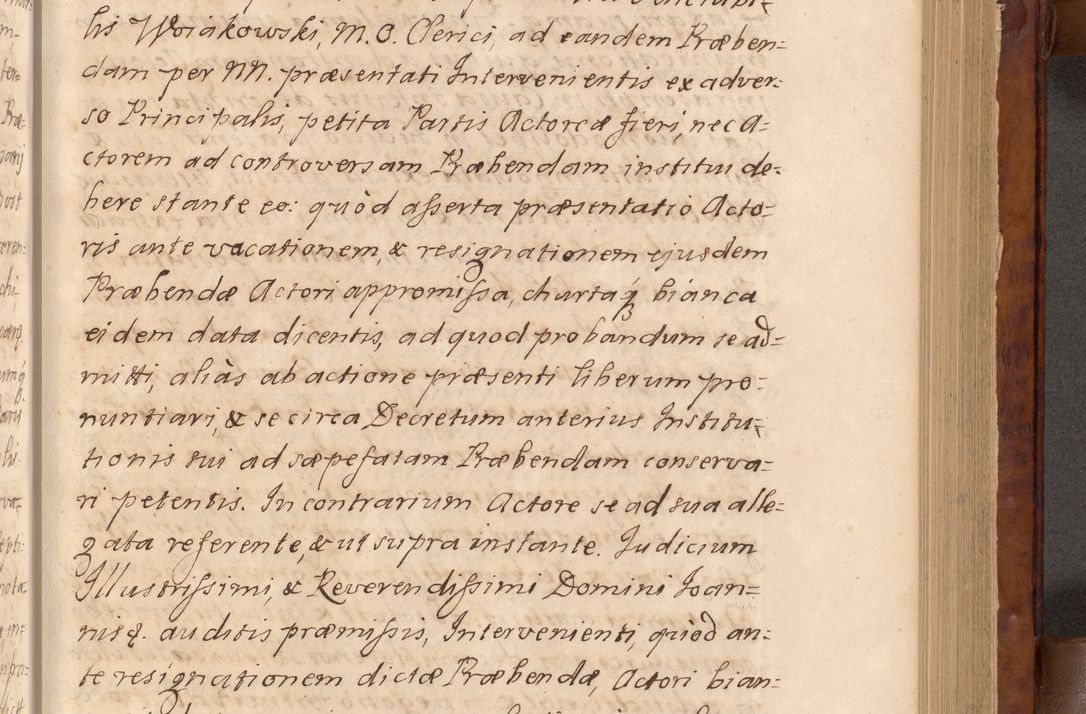 lis Woiakowski, M. O. Clerici, ad eandem Præben=
dam per NN. præsentati Intervenientis ex adver=
so Principalis, petita Partis Actoreæ fieri, nec A=
ctorem ad controversam Præbendam institui de=
bere stante eo: quòd asserta præsentatio Acto=
ris ante vacationem, & resignationem ejusdem
Præbendæ Actori appromissa, chartaq₃ bianca
eidem data dicentis, ad quod probandum se ad=
mitti, aliàs ab actione præsenti liberum pro=
nuntiari, & se circa Decretum anterius Institu=
tionis sui ad sæpefatam Præbendam conserva=
ri petentis. In contrarium Actore se ad sua alle=
gata referente, & ut supra instante. Judicium
Illustrissimi, & Reverendissimi Domini Joan=
nis &. auditis præmissis, Intervenienti, quòd an=
te resignationem dictæ Præbendæ, Actori bian=